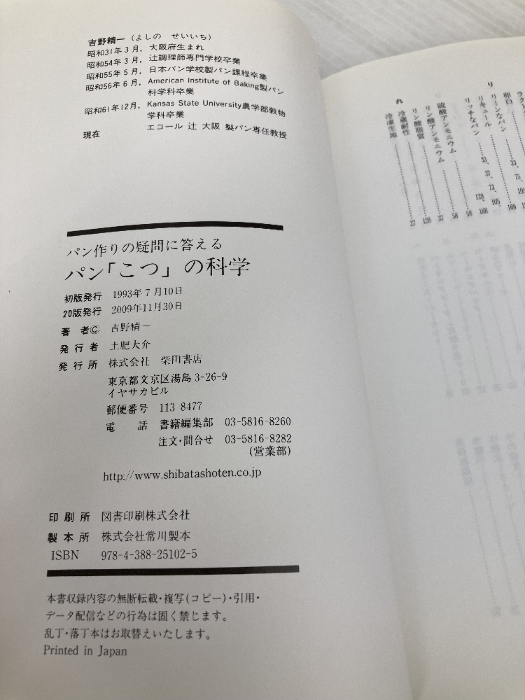 吉野精一（よしの せいいち）
昭和31年3月，大阪府生まれ
昭和54年3月，辻調理師専門学校卒業
昭和55年5月，日本パン学校製パン課程卒業
昭和56年6月，American Institute of Baking製パン
科学科卒業
昭和61年12月，Kansas State University農学部穀物
学科卒業
現在 エコール 辻 大阪 製パン専任教授
パン作りの疑問に答える
パン「こつ」の科学
初版発行 1993年7月10日
20版発行 2009年11月30日
著者© 吉野精一
発行者 土肥大介
発行所 株式会社 柴田書店
東京都文京区湯島3-26-9
イヤサカビル
郵便番号 113-8477
電話 書籍編集部 03-5816-8260
注文・問合せ 03-5816-8282
(営業部)
http://www.shibatashoten.co.jp
印刷所 図書印刷株式会社
製本所 株式会社常川製本
ISBN 978-4-388-25102-5
本書収録内容の無断転載・複写(コピー)・引用・
データ配信などの行為は固く禁じます。
乱丁・落丁本はお取替えいたします。
Printed in Japan
り
リーンなパン
リキュール
リッチなパン
硫酸アンモニウム
リン酸アンモニウム
リン脂質
れ
冷蔵耐性
冷凍生地